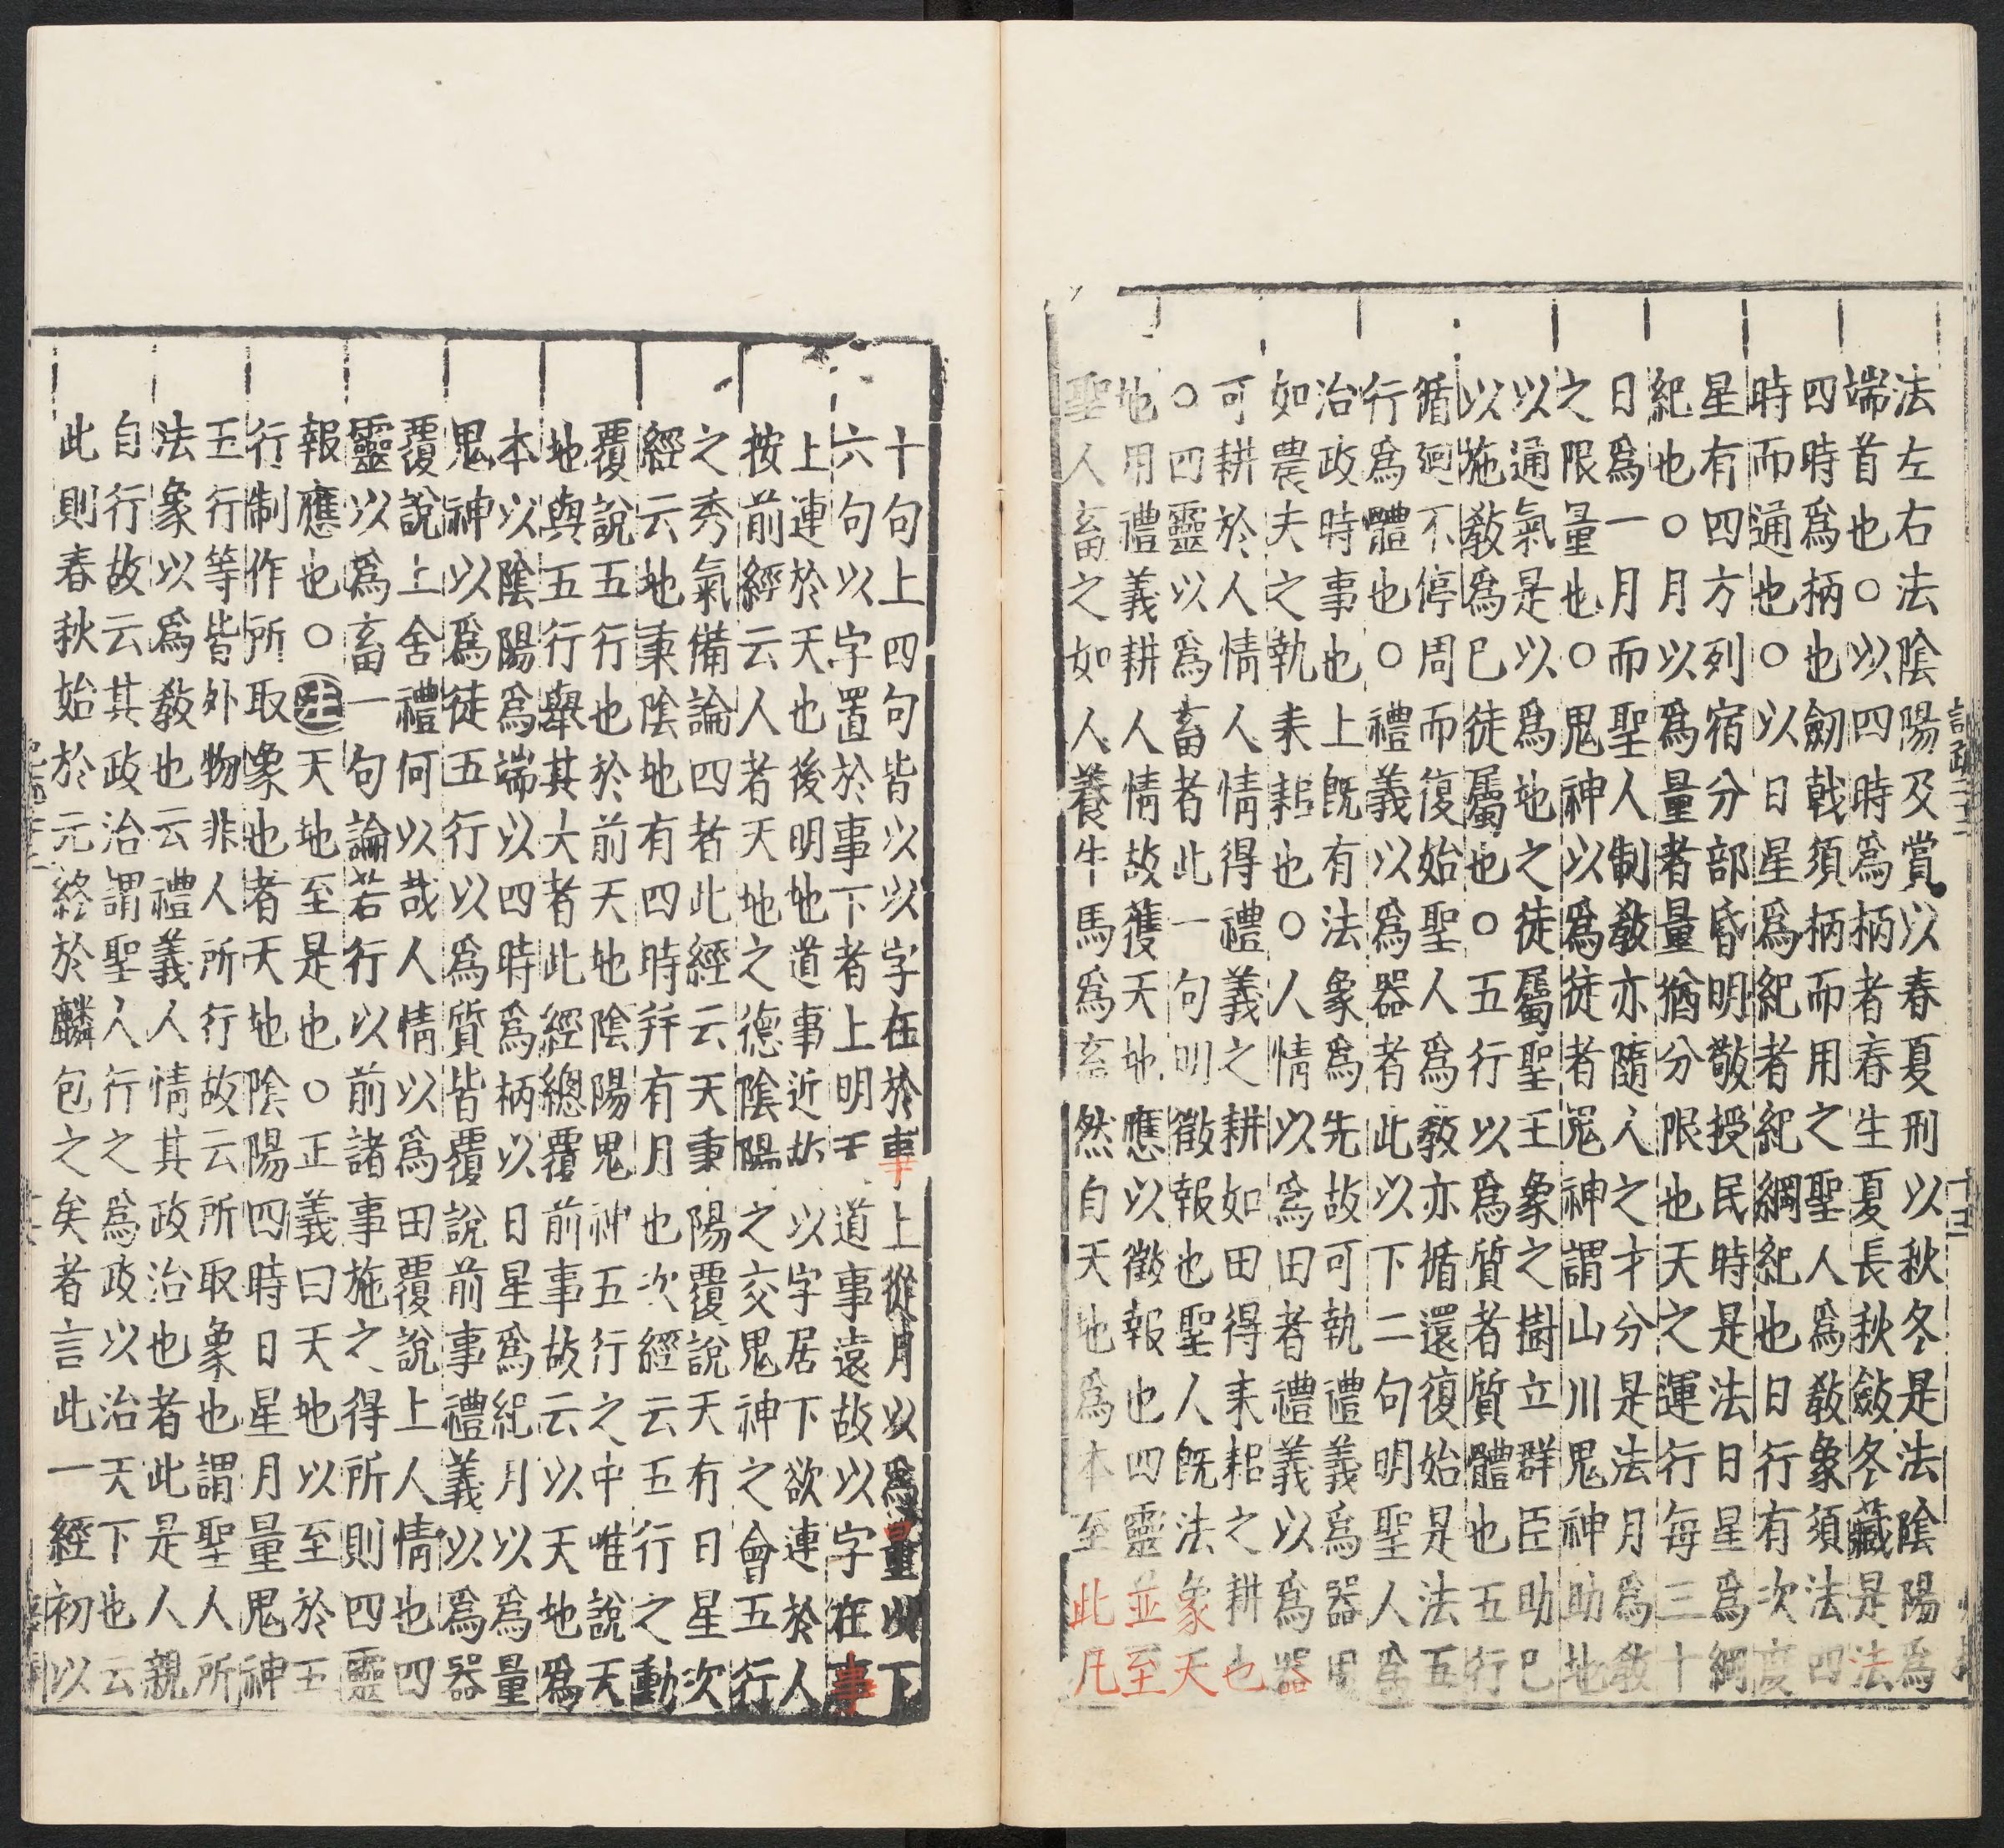 法左右法陰陽及賞以春夏刑以秋冬是法陰陽爲
端首也○以四時爲柄者春生夏長秋斂冬藏是法
四時爲柄也劒戟須柄而用之聖人爲敎象須法四
時而通也○以日星爲紀者紀綱紀也日行有次度
星有四方列宿分部昏明敬授民時是法日星爲綱
紀也○月以爲量者量猶分限也天之運行每三十
日爲一月而聖人制敎亦隨人之才分是法月爲敎
之限量也○鬼神以爲徒者鬼神謂山川鬼神助地
以通氣是以爲地之徒屬聖王象之樹立群臣助巳
以施敎爲巳徒屬也○五行以爲質者質體也五行
循廻不停周而復始聖人爲敎亦循還復始是法五
行爲體也○禮義以爲器者此以下二句明聖人爲
治政時事也上旣有法象爲先故可執禮義爲器用
如農夫之執耒耜也○人情以爲田者禮義以爲器
可耕於人情人情得禮義之耕如田得耒耜之耕也
○四靈以爲畜者此一句明徵報也聖人旣法象天
地用禮義耕人情故獲天地應以徵報也四靈並至
聖人畜之如人養牛馬爲畜然自天地爲本至此凡
十句上四句皆以以字在於事上從月以爲量以下
六句以字置於事下者上明天道事遠故以字在事
上連於天也後明地道事近故以字居下欲連於人
按前經云人者天地之德陰陽之交鬼神之會五行
之秀氣備論四者此經云天秉陽覆說天有日星次
經云地秉陰地有四時幷有月也次經云五行之動
覆說五行也於前天地陰陽鬼神五行之中唯說天
地與五行舉其大者此經總覆前事故云以天地爲
本以陰陽爲端以四時爲柄以日星爲紀月以爲量
鬼神以爲徒五行以爲質皆覆說前事禮義以爲器
覆說上舍禮何以哉人情以爲田覆說上人情也四
靈以爲畜一句論若行以前諸事施之得所則四靈
報應也○注天地至是也○正義曰天地以至於五
行制作所取象也者天地陰陽四時日星月量鬼神
五行等皆外物非人所行故云所取象也謂聖人所
法象以爲敎也云禮義人情其政治也者此是人親
自行故云其政治謂聖人行之爲政以治天下也云
此則春秋始於元終於麟包之矣者言此一經初以